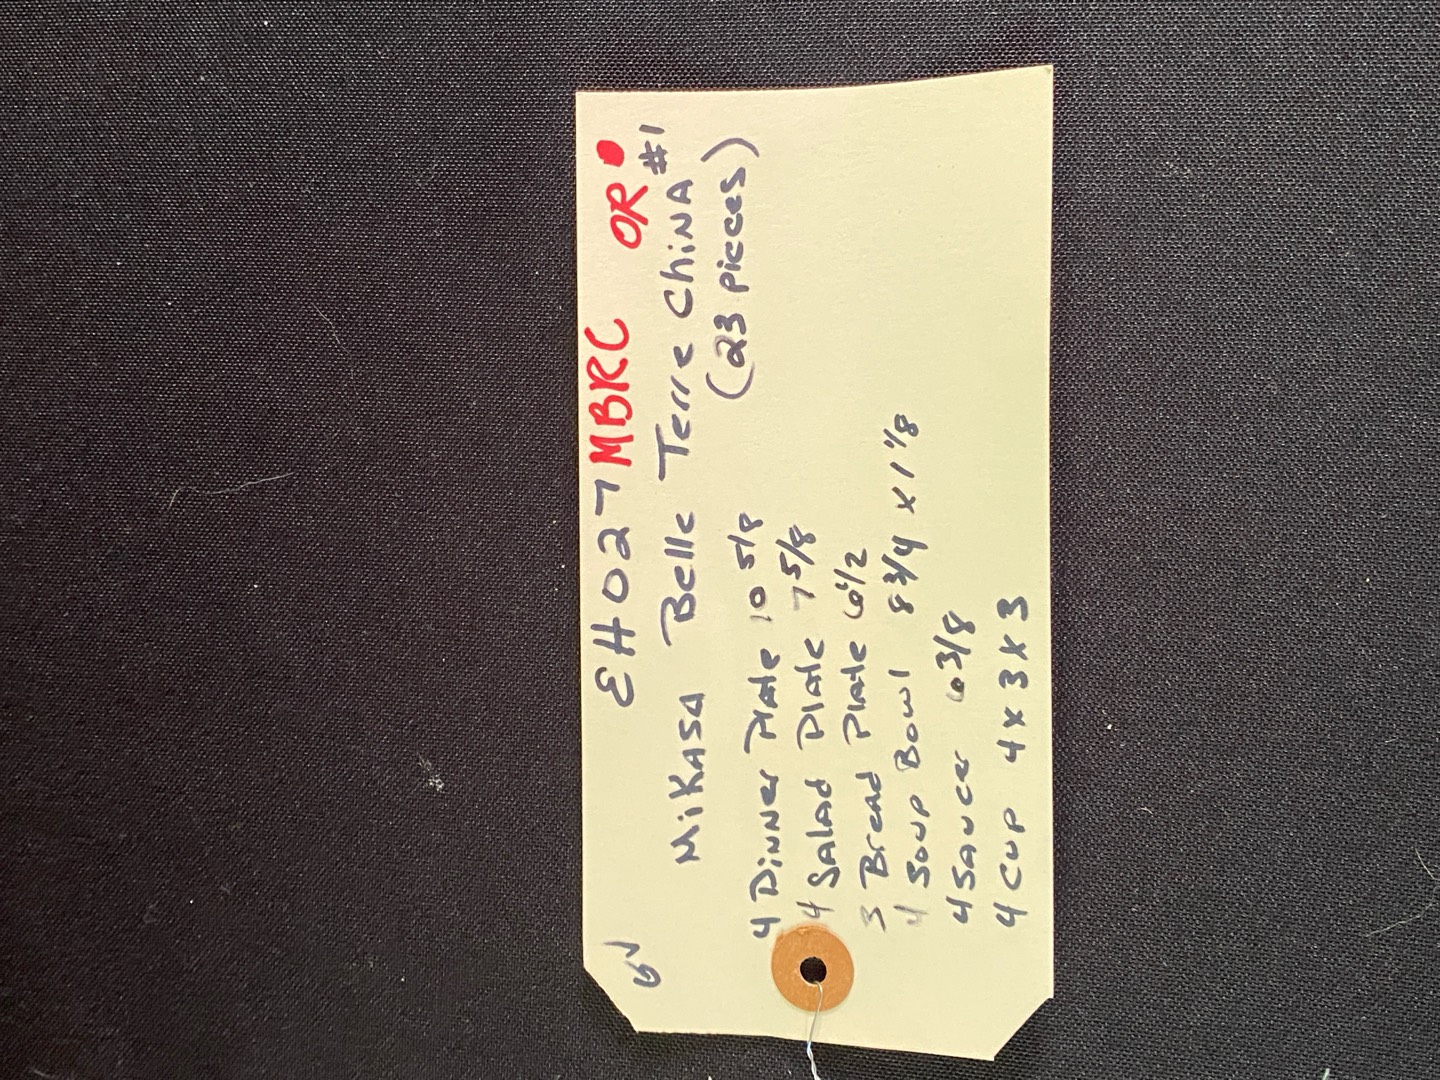 EH027 MBRC OR
MiKASA Belle Terre ChiNA #1
(23 pieces)
4 DiNNer Plate 10 5/8
4 Salad Plate 7 5/8
3 Bread Plate 6 1/2
4 Soup Bowl 8 3/4 x 1 1/8
4 Saucer 6 3/8
4 Cup 4 x 3 x 3